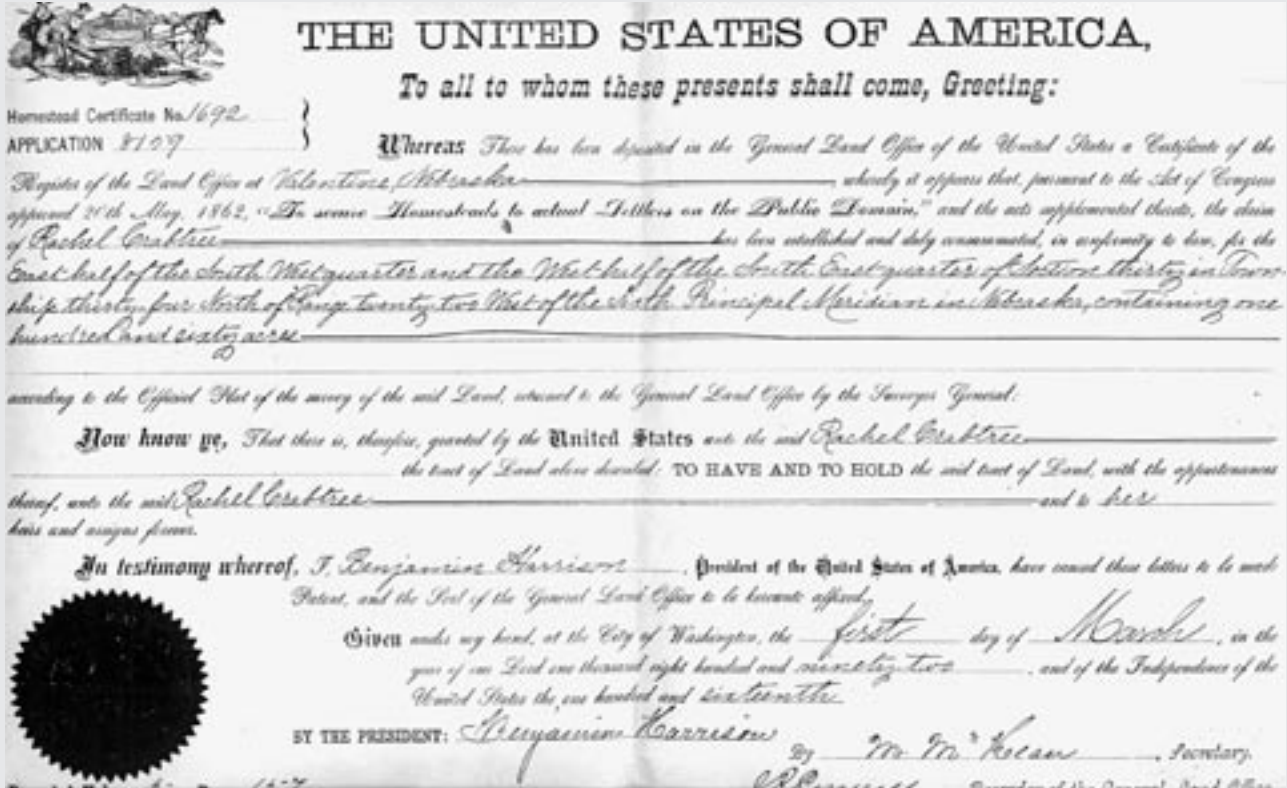 THE UNITED STATES OF AMERICA,
To all to whom these presents shall come, Greeting:
Homestead Certificate No. 1692
APPLICATION 8109
Whereas There has been deposited in the General Land Office of the United States a Certificate of the
Register of the Land Office at Valentine, Nebraska, whereby it appears that, pursuant to the Act of Congress
approved 20th May, 1862, "To secure Homesteads to actual Settlers on the Public Domain," and the acts supplemental thereto, the claim
of Rachel Crabtree has been established and duly consummated, in conformity to law, for the
East half of the South West quarter and the West half of the South East quarter of Section thirty in Town
ship thirty four North of Range twenty two West of the Sixth Principal Meridian in Nebraska, containing one
hundred and sixty acres
according to the Official Plat of the survey of the said Land, returned to the General Land Office by the Surveyor General:
Now know ye, That there is, therefore, granted by the United States unto the said Rachel Crabtree
the tract of Land above described: TO HAVE AND TO HOLD the said tract of Land, with the appurtenances
thereof, unto the said Rachel Crabtree and to her
heirs and assigns forever.
In testimony whereof, I, Benjamin Harrison, President of the United States of America, have caused these letters to be made
Patent, and the Seal of the General Land Office to be hereunto affixed.
Given under my hand, at the City of Washington, the first day of March, in the
year of our Lord one thousand eight hundred and ninety two, and of the Independence of the
United States the one hundred and sixteenth
BY THE PRESIDENT: Benjamin Harrison
By M. McKean, Secretary.
Recorder of the General Land Office